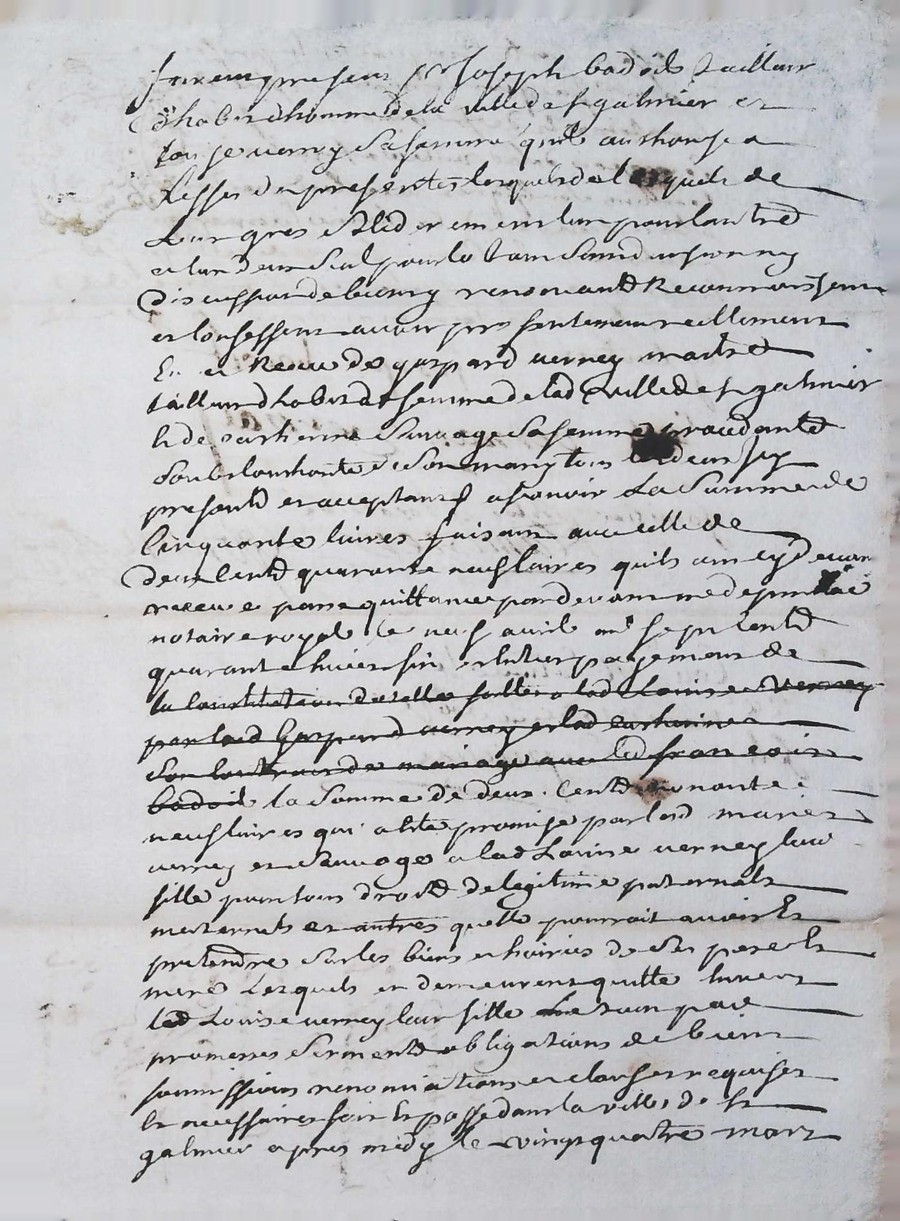 furent presens sr Joseph badoil tailleur
d'habits d'homme de la ville de st galmier et
Louise verney sa femme quil authorise a
l'effet des presentes lesquels de
Leurs gres solidairement lun pour lautre
et lun deux seul pour le tout sans division ny
discussion de biens y renonceant Reconnoissent
et confessent avoir presentement reellement
Eu et Receu de gaspard verney maitre
tailleur d'habits de femme de lad ville de st galmier
& de catherine Sauvage sa femme procedante
soubs lauthorité de son mary tous deux icy
presents et acceptants asscavoir La Somme de
Cinquante livres faisant avec celle de
deux Cents quarante neuf livres quils ont cy devant
receue par quittance par devant me
notaire royal le neuf avril mil sept cents
quarante huict fin et entier payement de
la Constitution dotalle faitte a lad Louise Verney
par led Gaspard verney et lad catherine
son contract de mariage avec led francois
badoil la somme de deux Cents nonante
neuf livres qui a été promise par lesd mariés
verney et Sauvage a lad Louise verney leur
fille pour tous droits de legitime paternels
maternels et autres quelle pourroit avoir Et
pretendre sur les biens et hoiries de ses pere Et
mere Lesquels en demeurent quitte envers
lad Louise verney leur fille
promesses serments obligations de biens
soumissions renonciations et clauses requises
Et necessaires fait Et passé dans la ville de st
galmier apres midy le vingt quatre mars